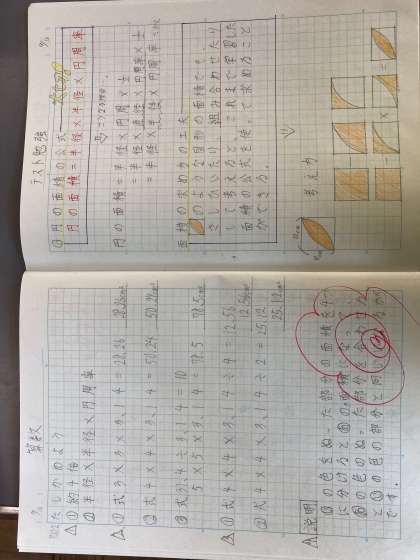 テスト勉強
①円の面積の公式
円の面積=半径×半径×円周率
円の面積=半径×円周×1/2
=半径×直径×円周率×1/2
=半径×半径×円周率
面積の求め方の工夫
のような図形の面積でも
さしひいたり 組み合わせたり
して考えると、これまで学習した
面積の公式を使って求めること
ができる。
考え方
算数
たしかめよう
①約4倍
②半径×半径×円周率
①式3×3×3.14=28.26 28.26cm²
②式4×4×3.14=50.24 50.24cm²
③式31.4÷3.14=10
5×5×3.14=78.5 78.5cm²
①式4×4×3.14÷4=12.56
12.56cm²
②式4×4×3.14÷2=25.12
25.12cm²
説明
の色をぬった部分の面積を
に分けると
の色のぬった部分を合わせ
の色の部分と同じ
です。